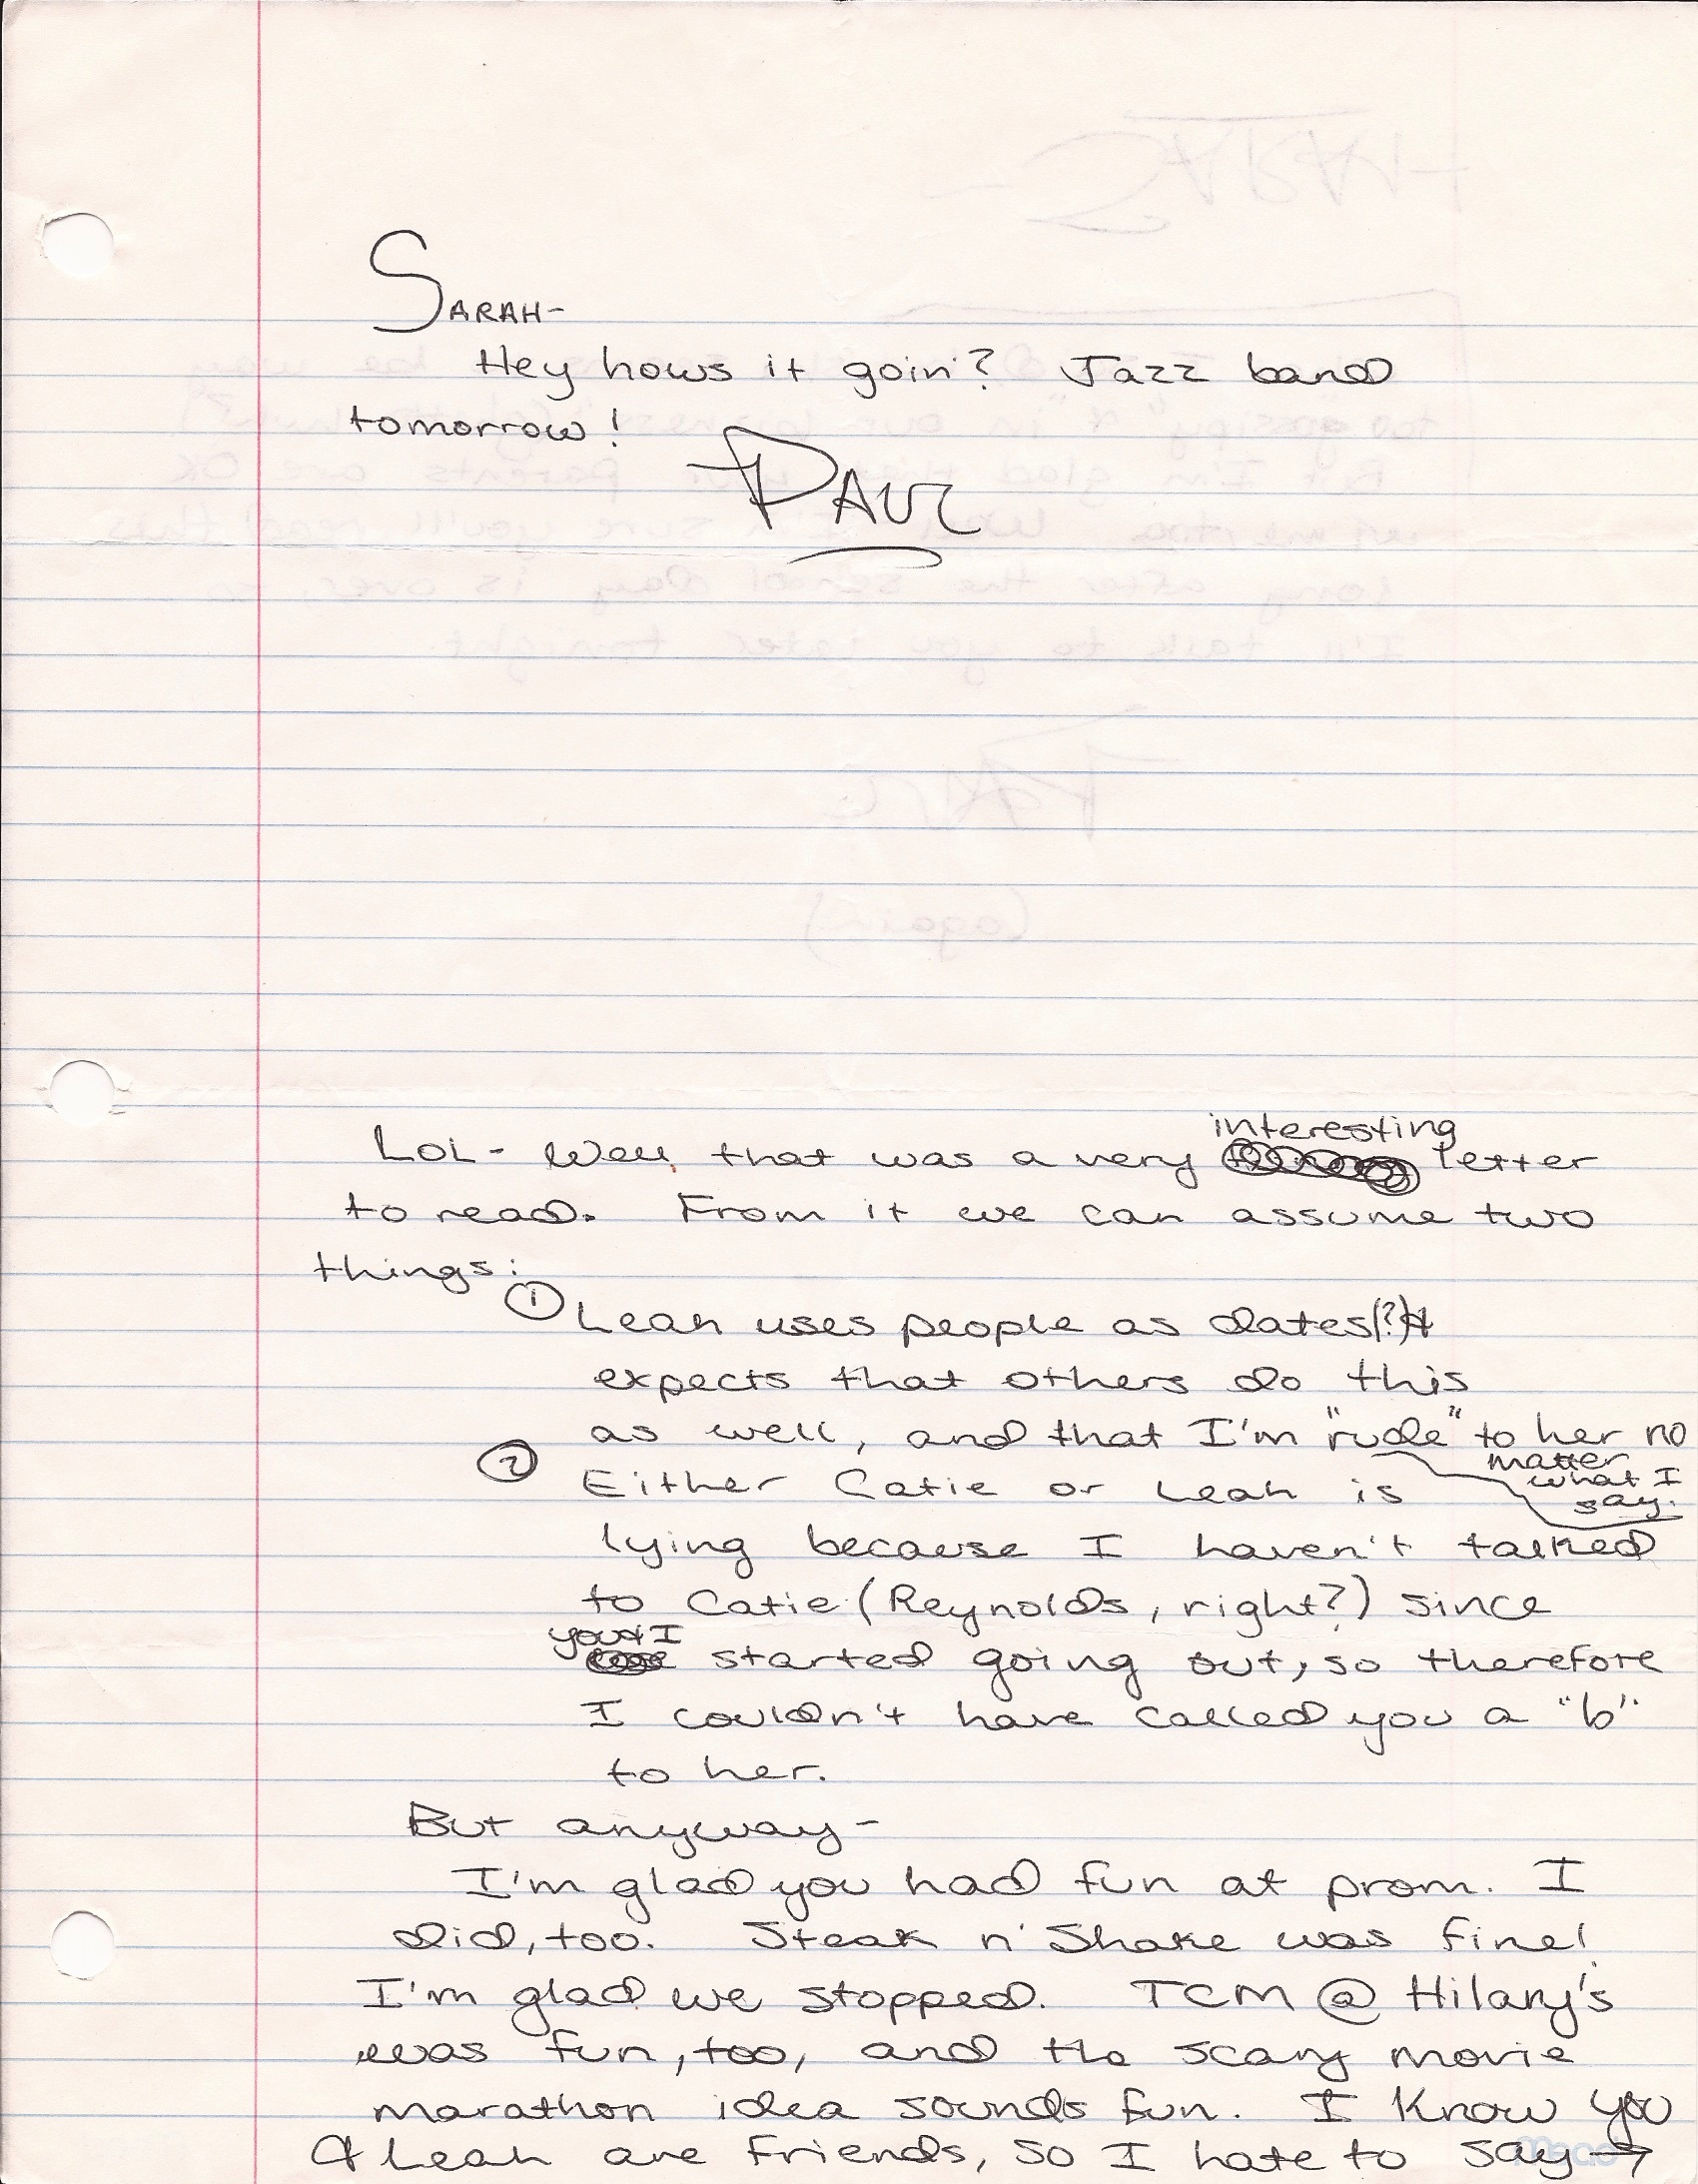 SARAH-
Hey hows it goin'? Jazz band
tomorrow!
PAUL
interesting
LOL- Well, that was a very letter
to read. From it we can assume two
things:
① Leah uses people as dates(?)&
expects that others do this
as well, and that I'm "rude" to her no
matter
what I
say.
② Either Catie or Leah is
lying because I haven't talked
to Catie (Reynolds, right?) since
you & I
started going out, so therefore
I couldn't have called you a "b"
to her.
But anyway-
I'm glad you had fun at prom. I
did, too. Steak n' Shake was fine!
I'm glad we stopped. TCM @ Hilary's
was fun, too, and the scary movie
marathon idea sounds fun. I know you
& Leah are friends, so I hate to say →
Mead